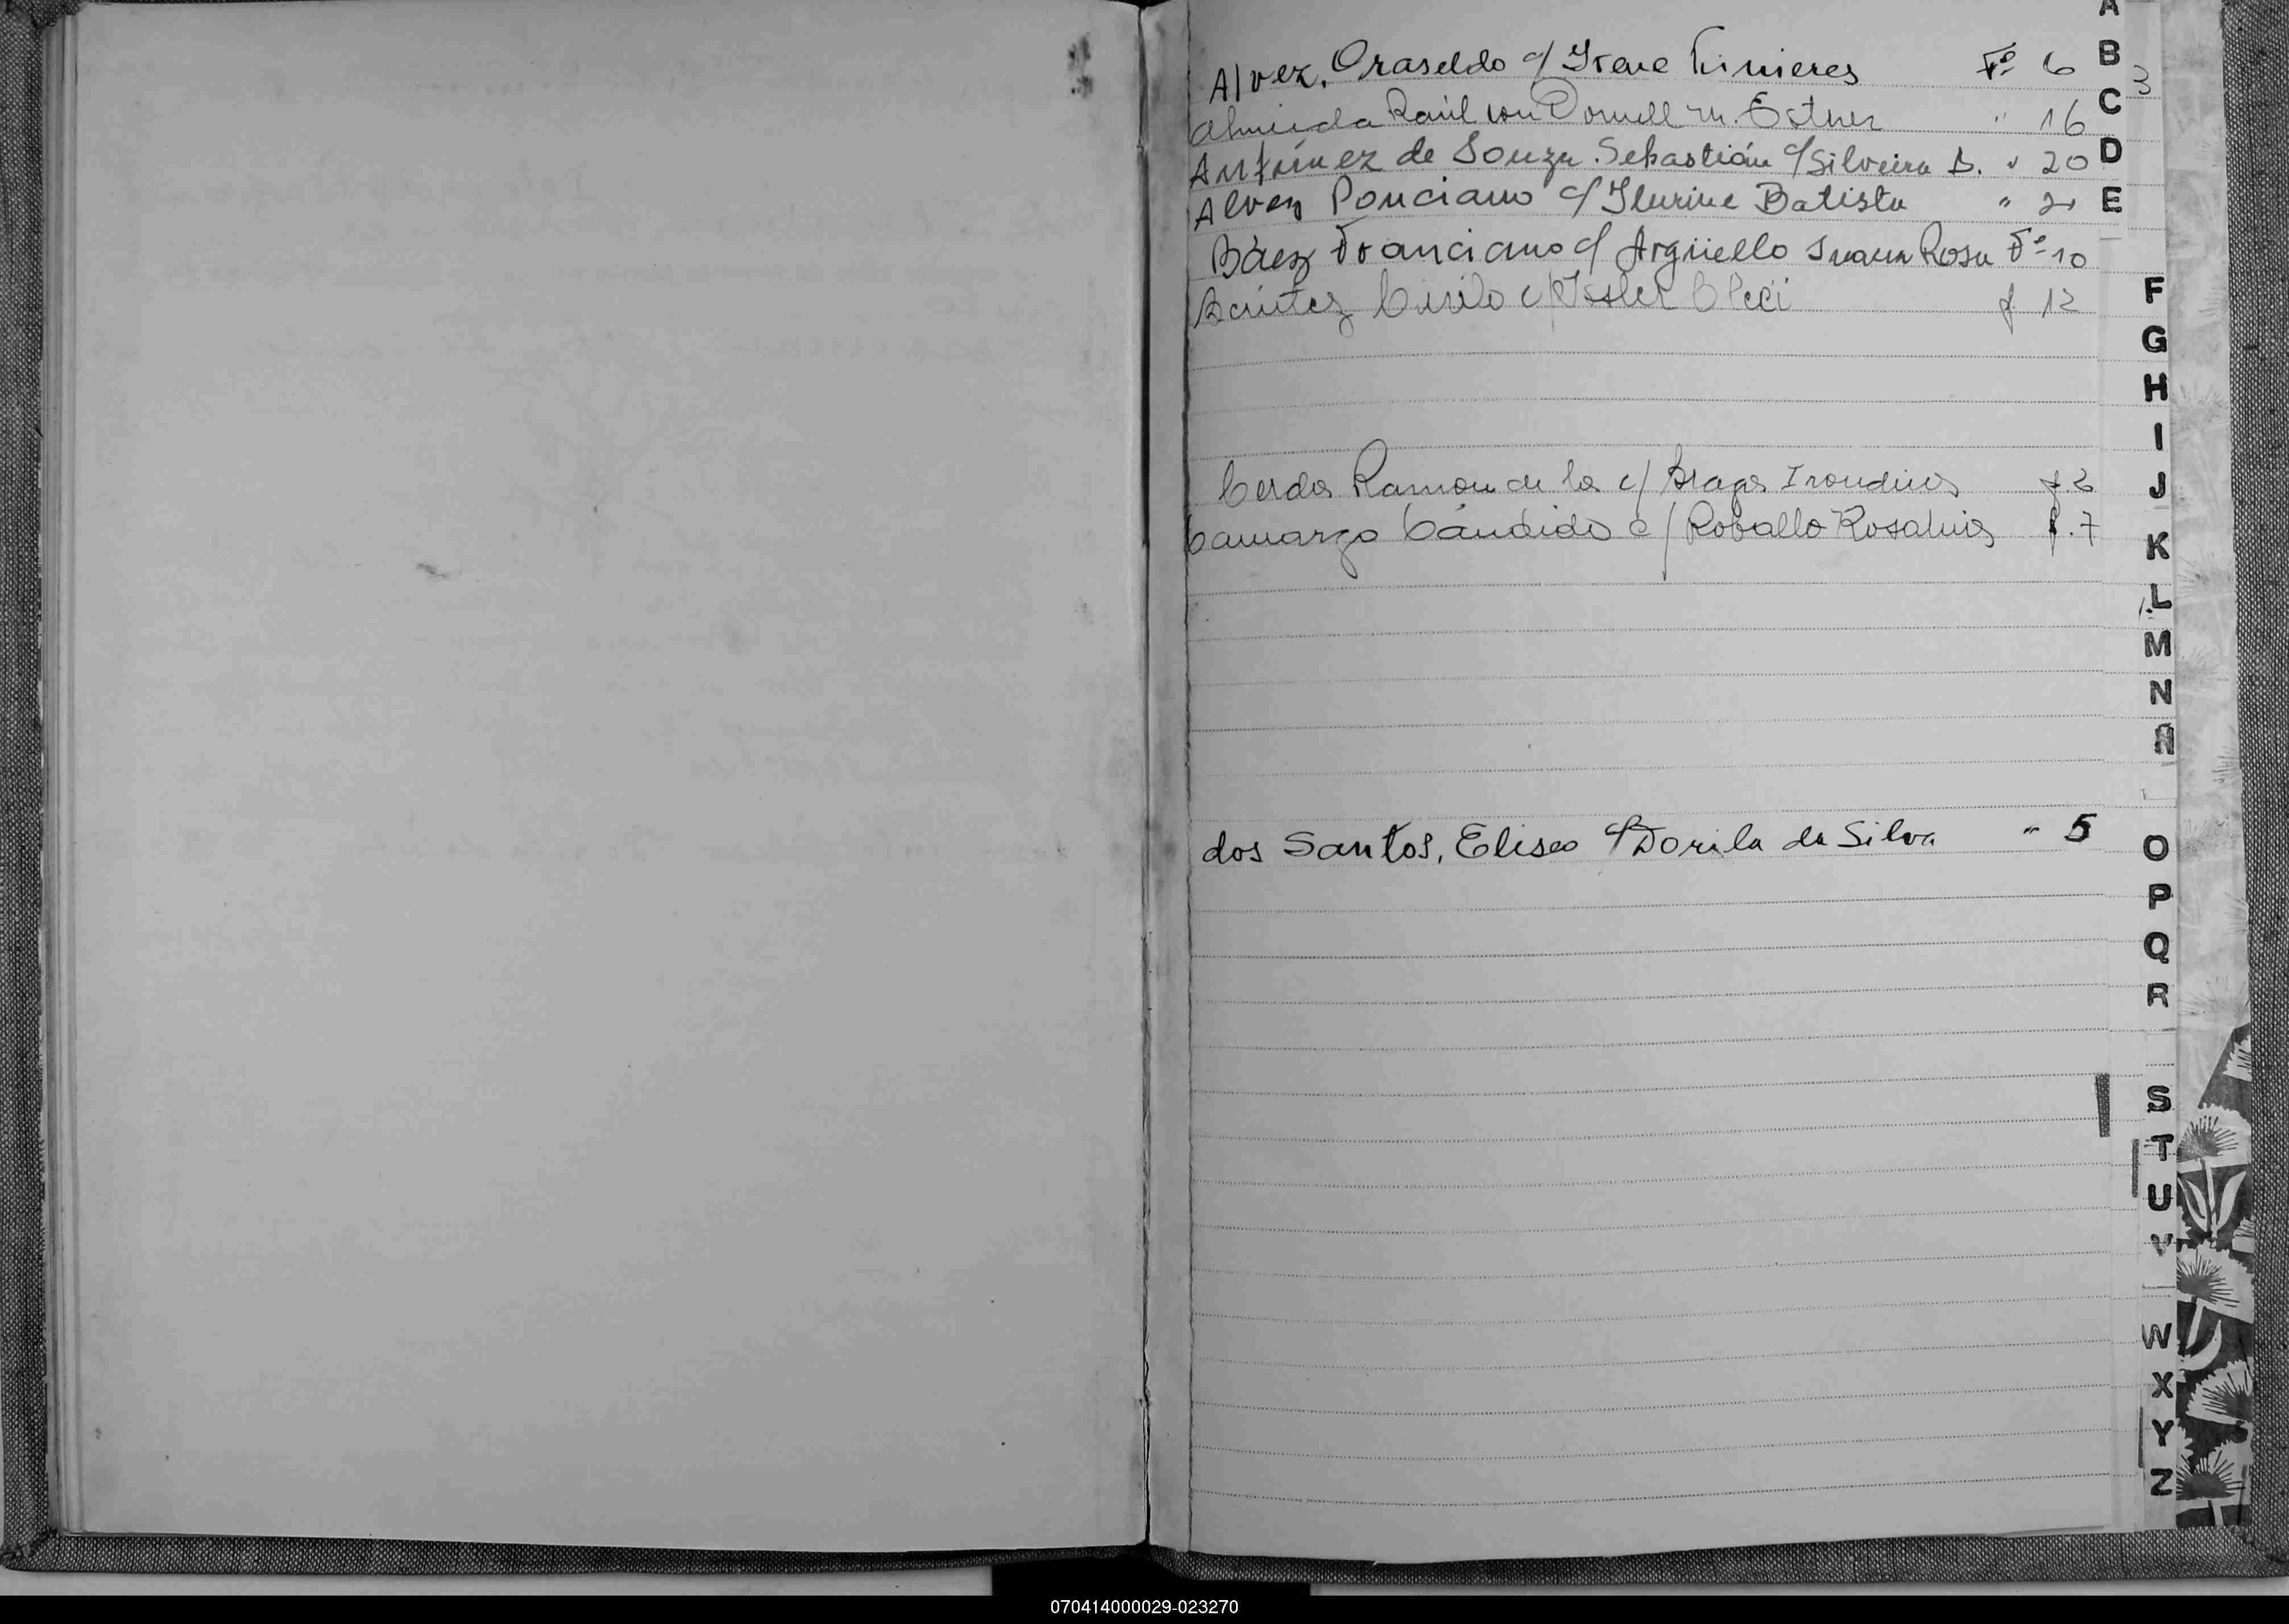 A
Alvez, Oraseldo c/ Irene Fimieres Fº 6
B
3
Almeida Raúl con Dornell M. Ester " 16
C
Antúnez de Souza Sebastián c/ Silveira B. " 20
D
Alvez Ponciano c/ Iturine Batista " 21
E
Báez Franciano c/ Argüello Juana Rosa Fº 10
Benítez Cirilo c/ Isler Cleci f. 12
F
G
H
I
Cerda Ramon de la c/ Braga Irondina f. 2
J
Camargo Cándido c/ Roballo Rosalina f. 7
K
L
M
N
Ñ
dos Santos, Eliseo c/ Dorila da Silva " 5
O
P
Q
R
S
T
U
V
W
X
Y
Z
070414000029-023270